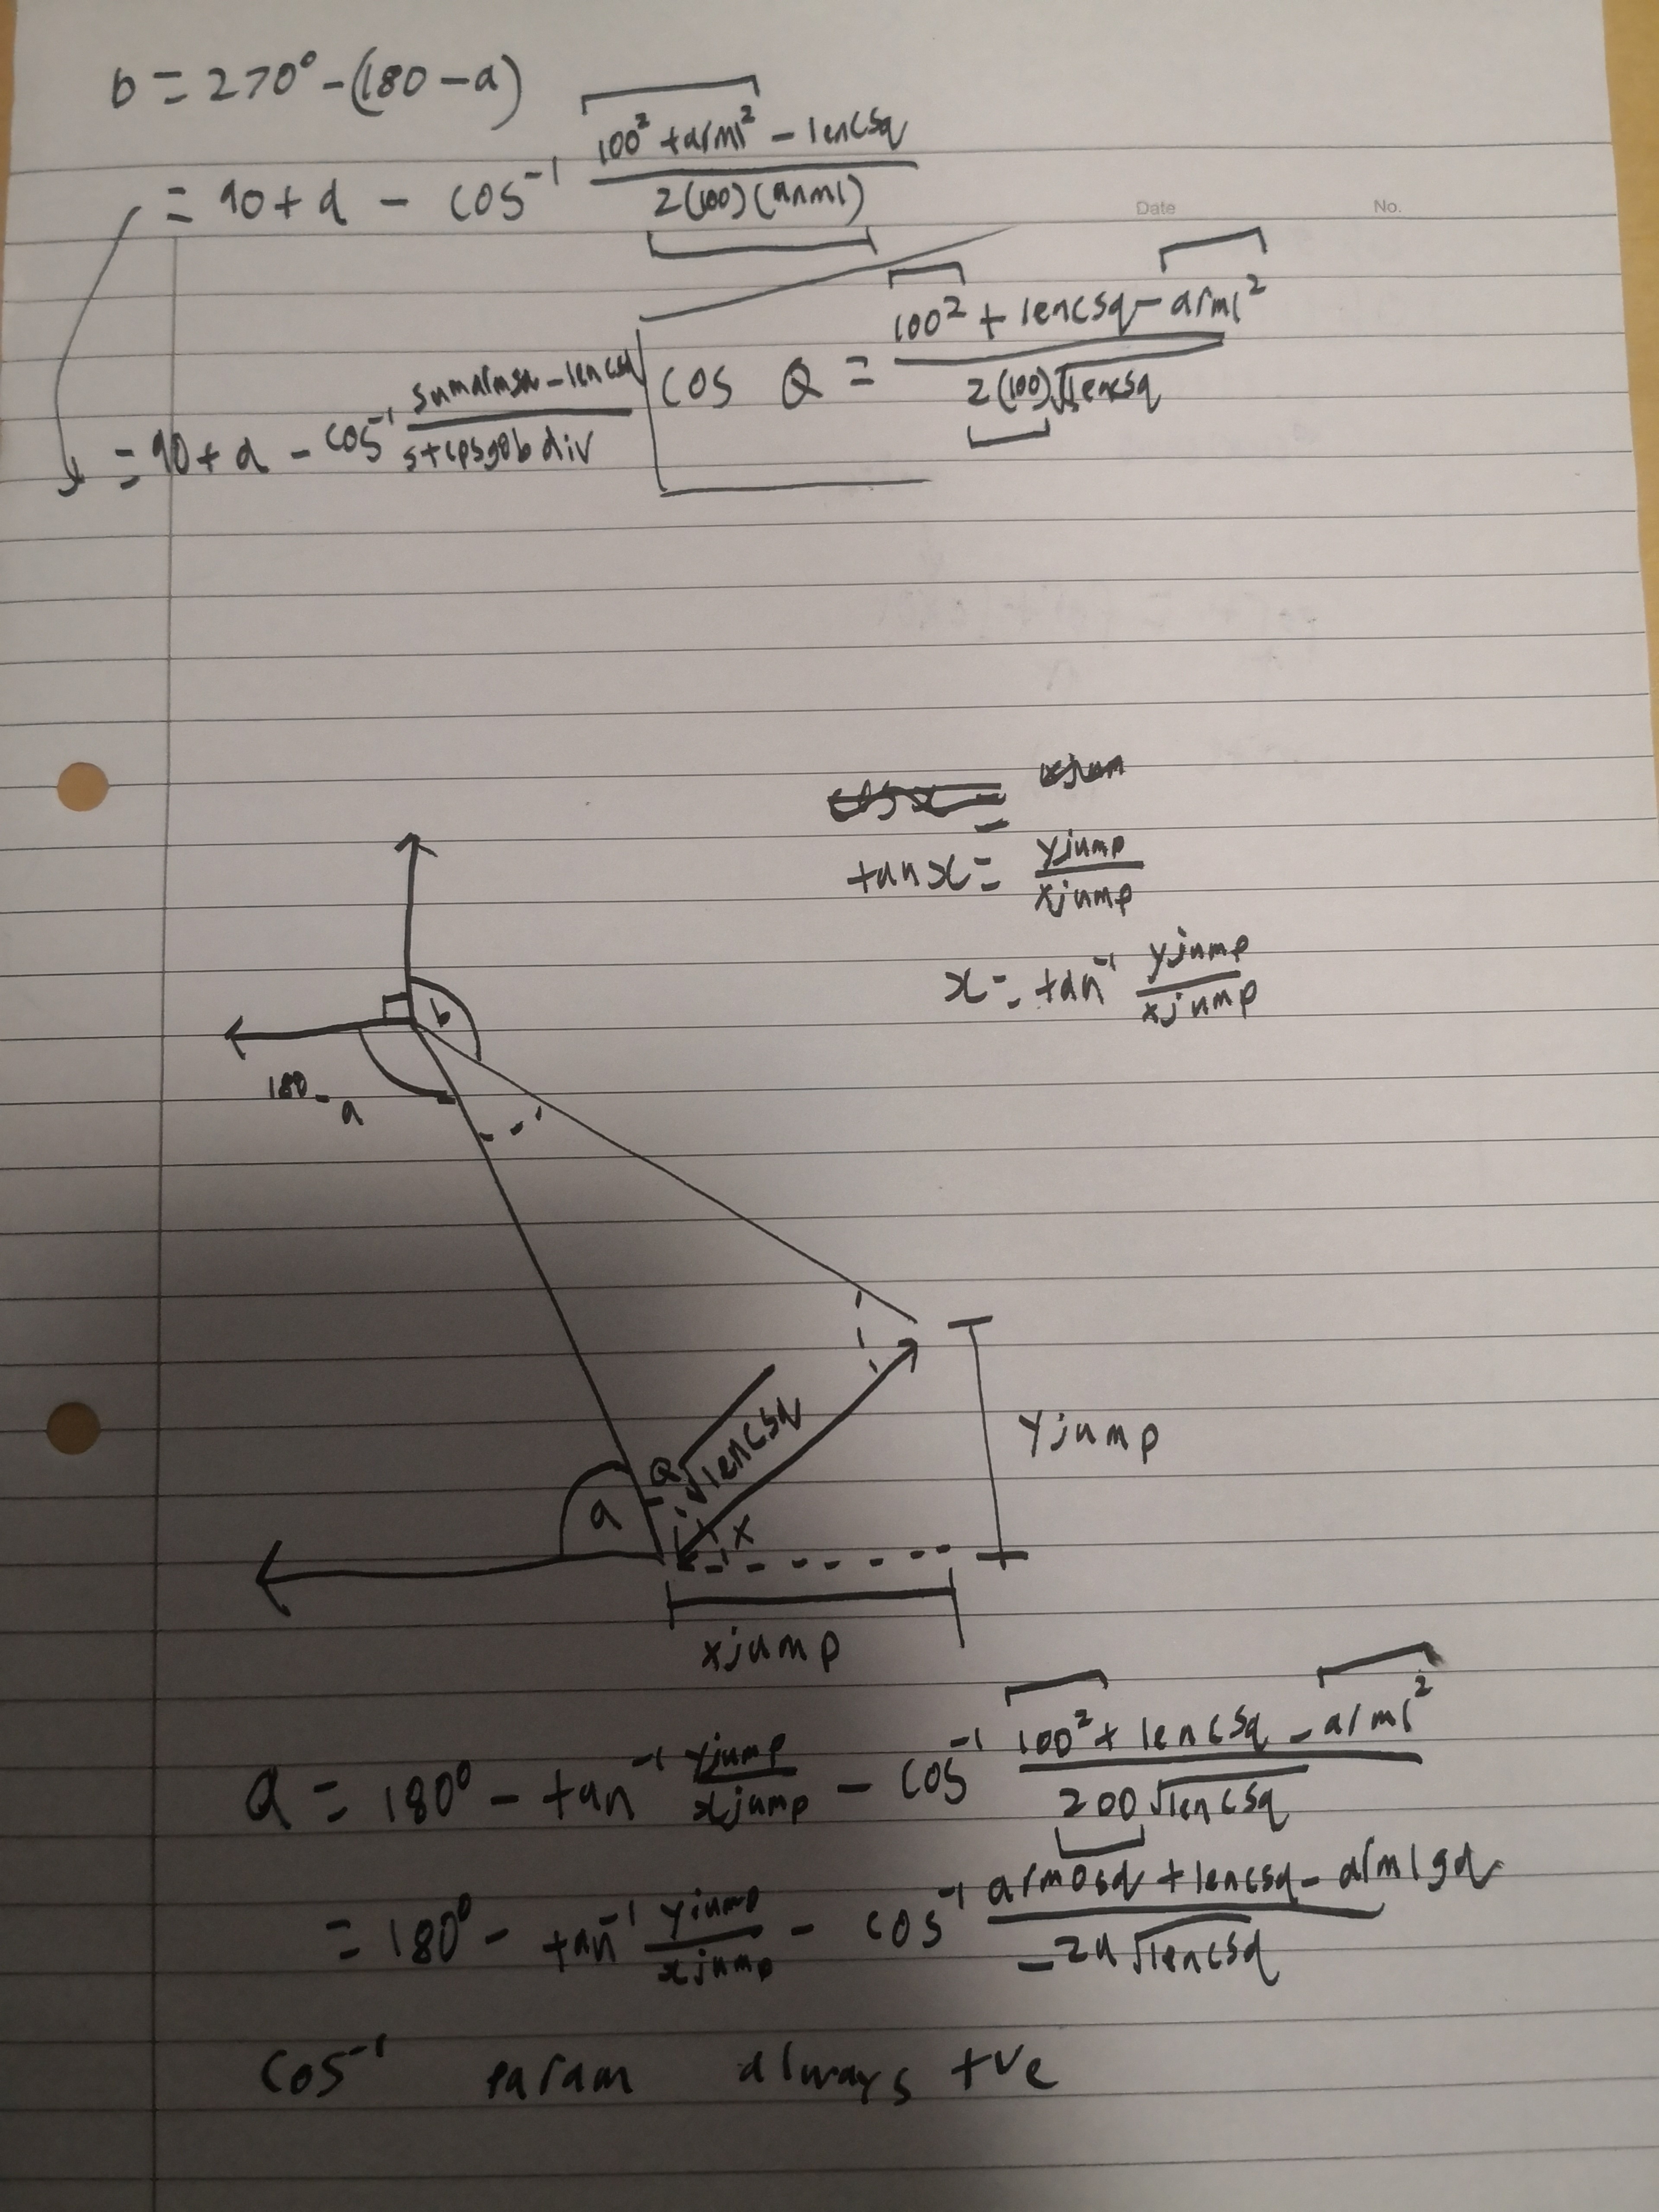 b = 270° - (180 - a)
= 90 + a - cos⁻¹ (100² + arm1² - lencsq) / (2(100)(arm1))
Date No.
cos Q = (100² + lencsq - arm1²) / (2(100)√lencsq)
= 90 + a - cos⁻¹ (sumarmsq - lencsq) /
tan x = yjump / xjump
x = tan⁻¹ yjump / xjump
b
180 - a
Q √lencsq
a x
yjump
xjump
a = 180° - tan⁻¹ yjump / xjump - cos⁻¹ (100² + lencsq - arm1²) / (200 √lencsq)
= 180° - tan⁻¹ yjump / xjump - cos⁻¹ (arm0sq + lencsq - arm1sq) / √lencsq
cos⁻¹ param always +ve